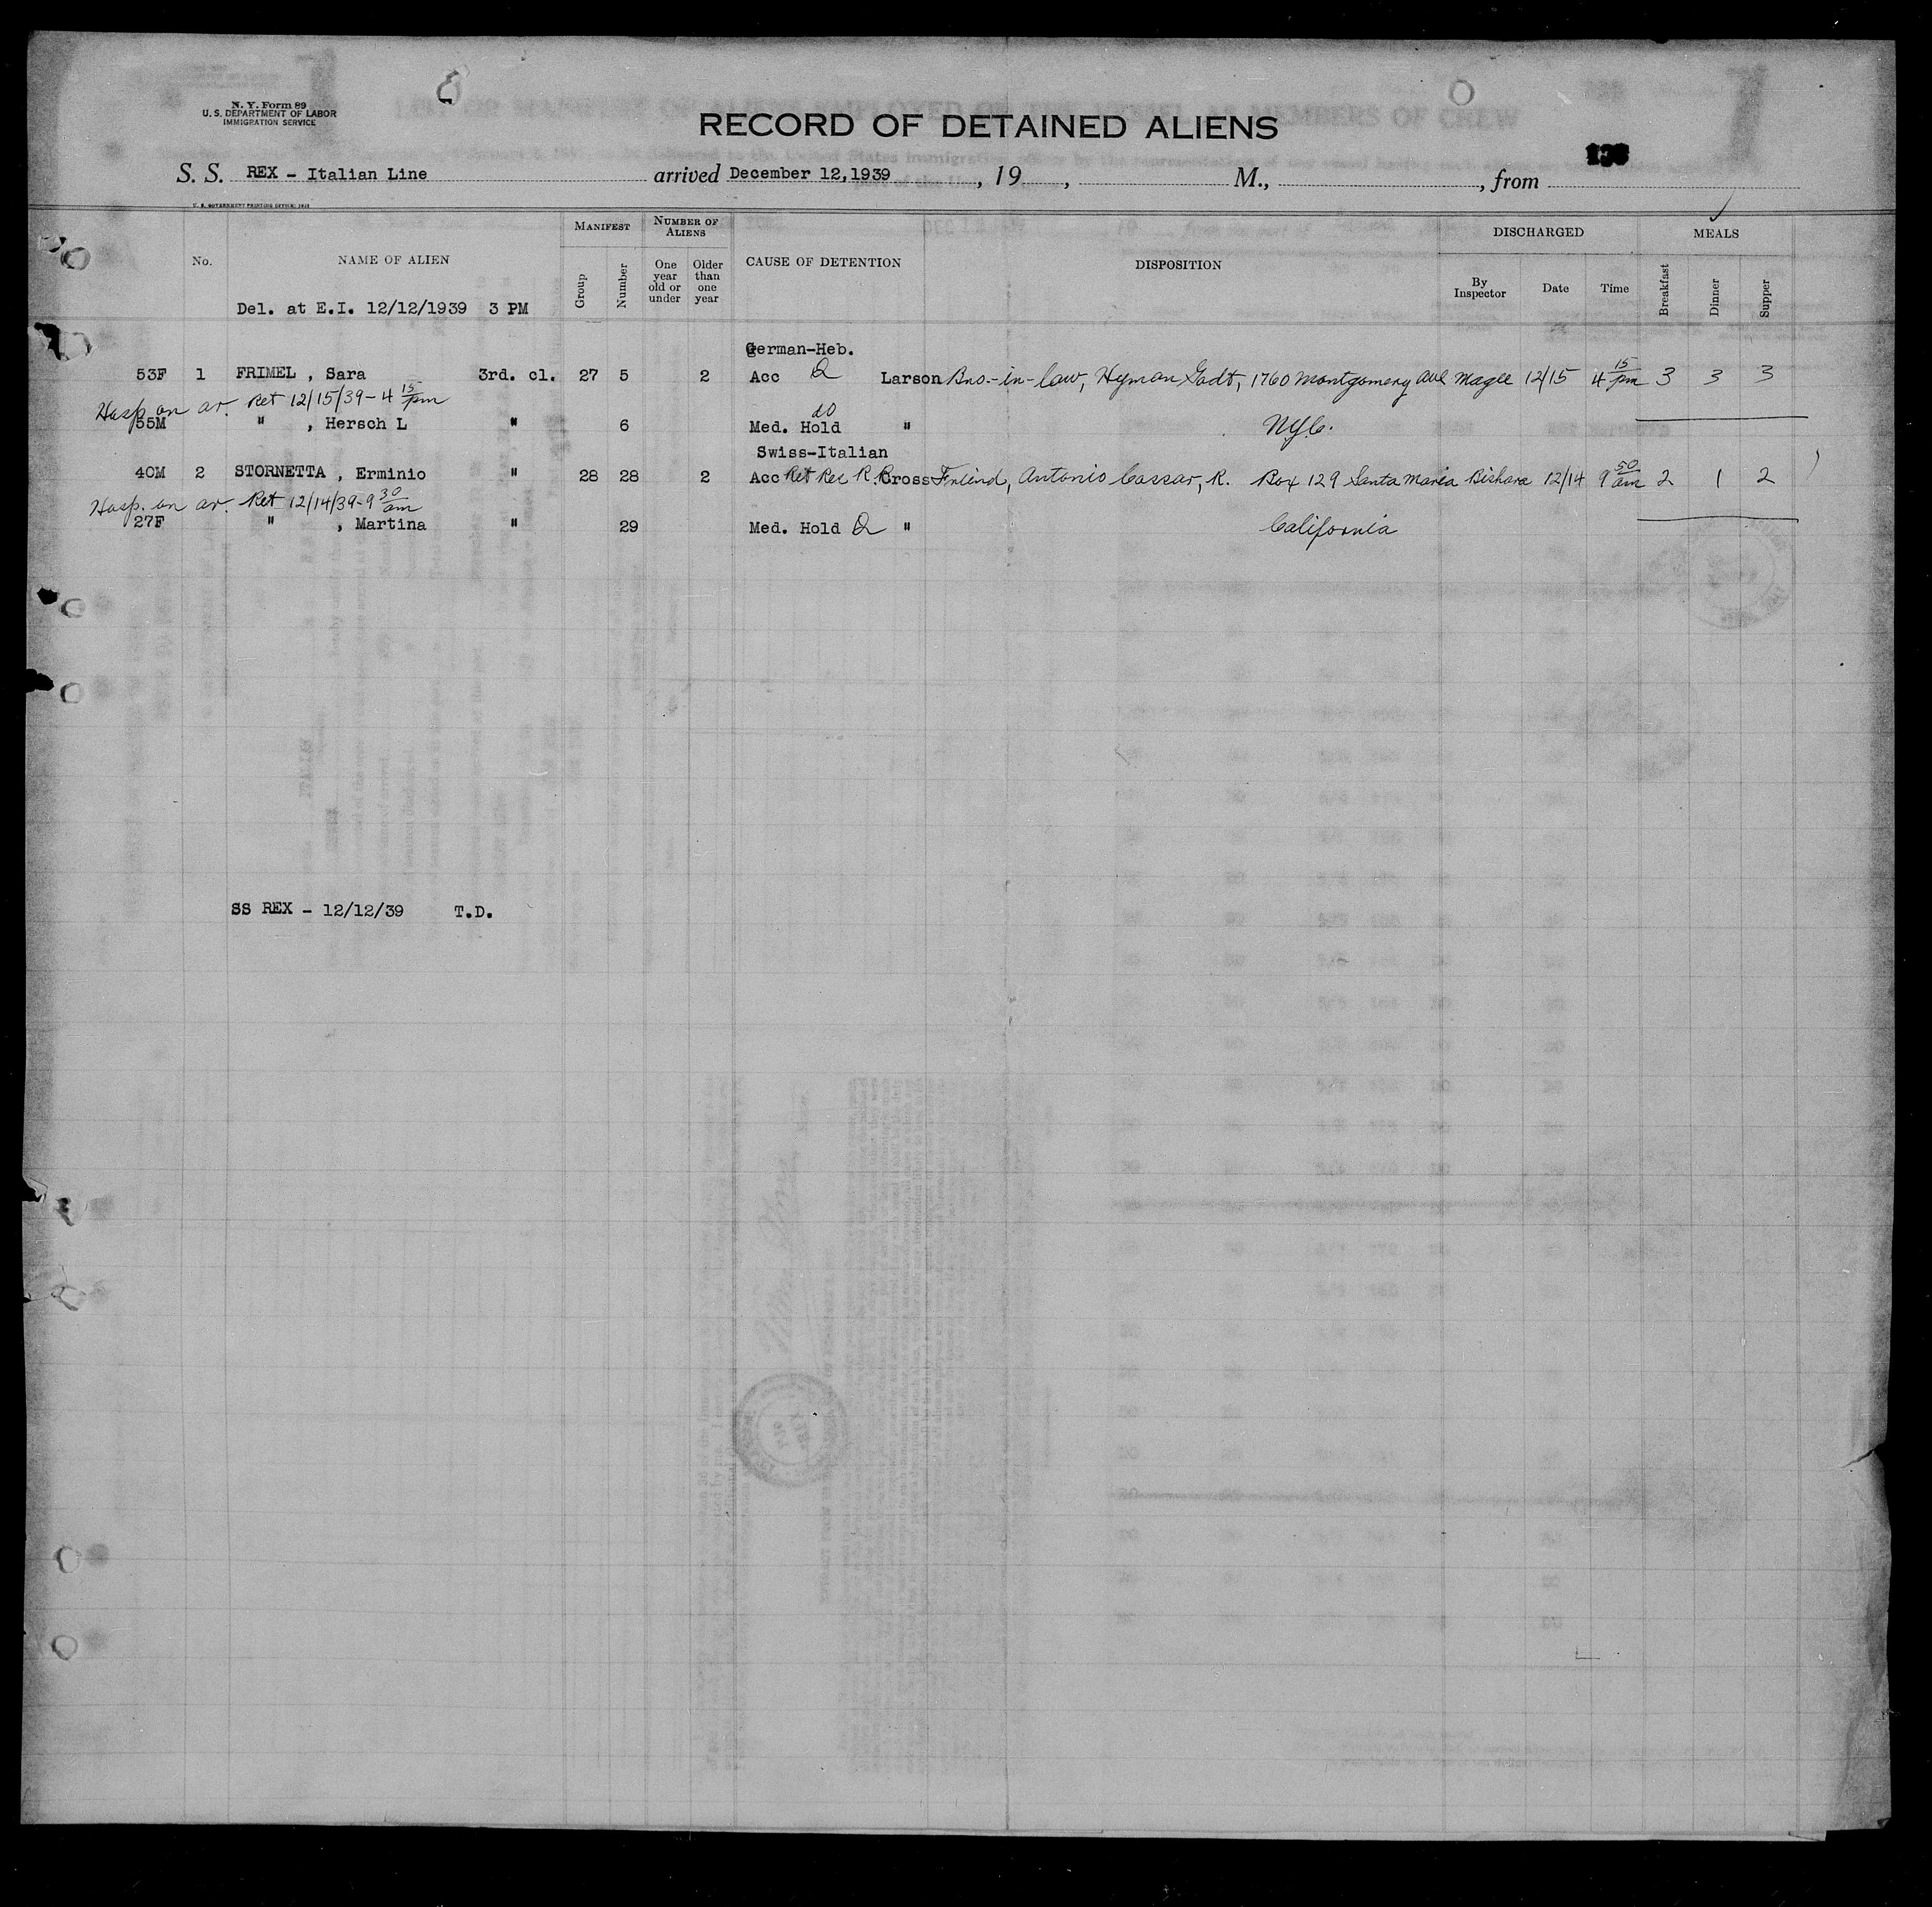 N. Y. Form 89
U. S. DEPARTMENT OF LABOR
IMMIGRATION SERVICE
RECORD OF DETAINED ALIENS
S. S. REX - Italian Line arrived December 12,1939, 19 , M., , from
U. S. GOVERNMENT PRINTING OFFICE:
No. NAME OF ALIEN MANIFEST NUMBER OF ALIENS CAUSE OF DETENTION DISPOSITION DISCHARGED MEALS
Group Number One year old or under Older than one year By Inspector Date Time Breakfast Dinner Supper
Del. at E.I. 12/12/1939 3 PM
German-Heb.
53F 1 FRIMEL , Sara 3rd. cl. 27 5 2 Acc Larson Bro.-in-law, Hyman Gadt, 1760 Montgomery Ave Magee 12/15 4 15 pm 3 3 3
Hosp on ar. Ret 12/15/39-4 15 pm
55M " , Hersch L " 6 Med. Hold do " NYC.
Swiss-Italian
40M 2 STORNETTA , Erminio " 28 28 2 Acc Ret Rec R. Cross Friend, Antonio Cassar, R. Box 129 Santa Maria Bishara 12/14 9 50 am 2 1 2
Hosp. on ar. Ret 12/14/39-9 30 am
27F " , Martina " 29 Med. Hold " California
SS REX - 12/12/39 T.D.